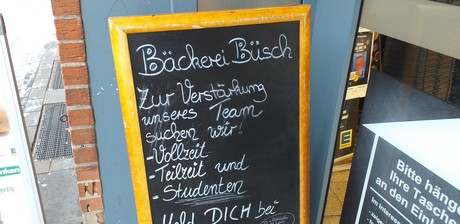 Bäckerei Büsch
Zur Verstärkung
unseres Team
suchen wir!
-Vollzeit
-Teilzeit und
-Studenten
Meld DICH bei
Bitte häng
Ihre Tasche
an den Ein
im Inter